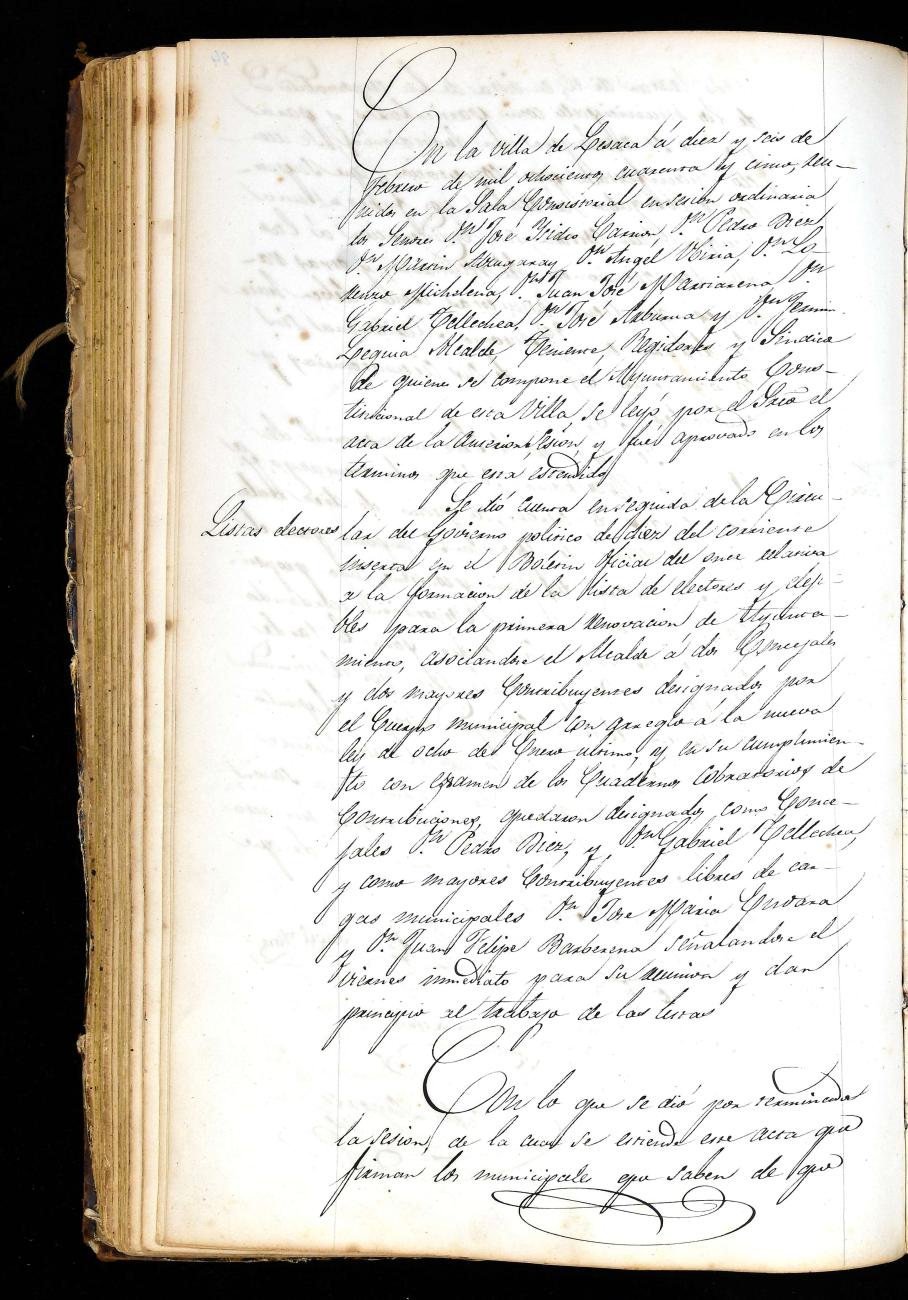 En la villa de Lesaca á diez y seis de
Febrero de mil ochocientos cuarenta y cinco, reu-
nidos en la Sala Consistorial en sesion ordinaria
los Señores Dn. Jose Ysidro Carrion, Dn. Pedro Diez,
Dn. Martin Alzugaray, Dn. Angel Obiria, Dn. Lo-
renzo Michelena, Dn. Juan José Marriarena, Dn.
Gabriel Tellechea, Dn. José Arburua y Dn. Fermin
Leguia Alcalde Teniente Regidores y Sindico
de quienes se compone el Ayuntamiento Cons-
titucional de esta Villa se leyó por el Srio el
acta de la anterior sesion, y fué aprovado en los
terminos que está estendido
Se dió cuenta en seguida de la Circu-
Listas electores
lar del Govierno politico de diez del corriente
inserta en el Boletin Oficial del once relativa
a la formacion de la lista de electores y eleji-
bles para la primera renovacion de Ayunta-
miento, asociandose el Alcalde á dos Concejales
y dos mayores Contribuyentes designados por
el Cuerpo municipal con arreglo á la nueva
ley de ocho de Enero ultimo, y en su cumplimien-
to con esamen de los Cuadernos Cobratorios de
Contribuciones, quedaron designados como Conce-
jales Dn. Pedro Diez, y Dn. Gabriel Tellechea,
y como mayores Contribuyentes libres de car-
gas municipales Dn. Jose Maria Endara
y Dn. Juan Felipe Barberena señalandose el
viernes inmediato para su reunion y dar
principio al trabajo de las listas
Con lo que se dió por terminada
la sesion, de la cual se estiende este acta que
firman los municipales que saben de que